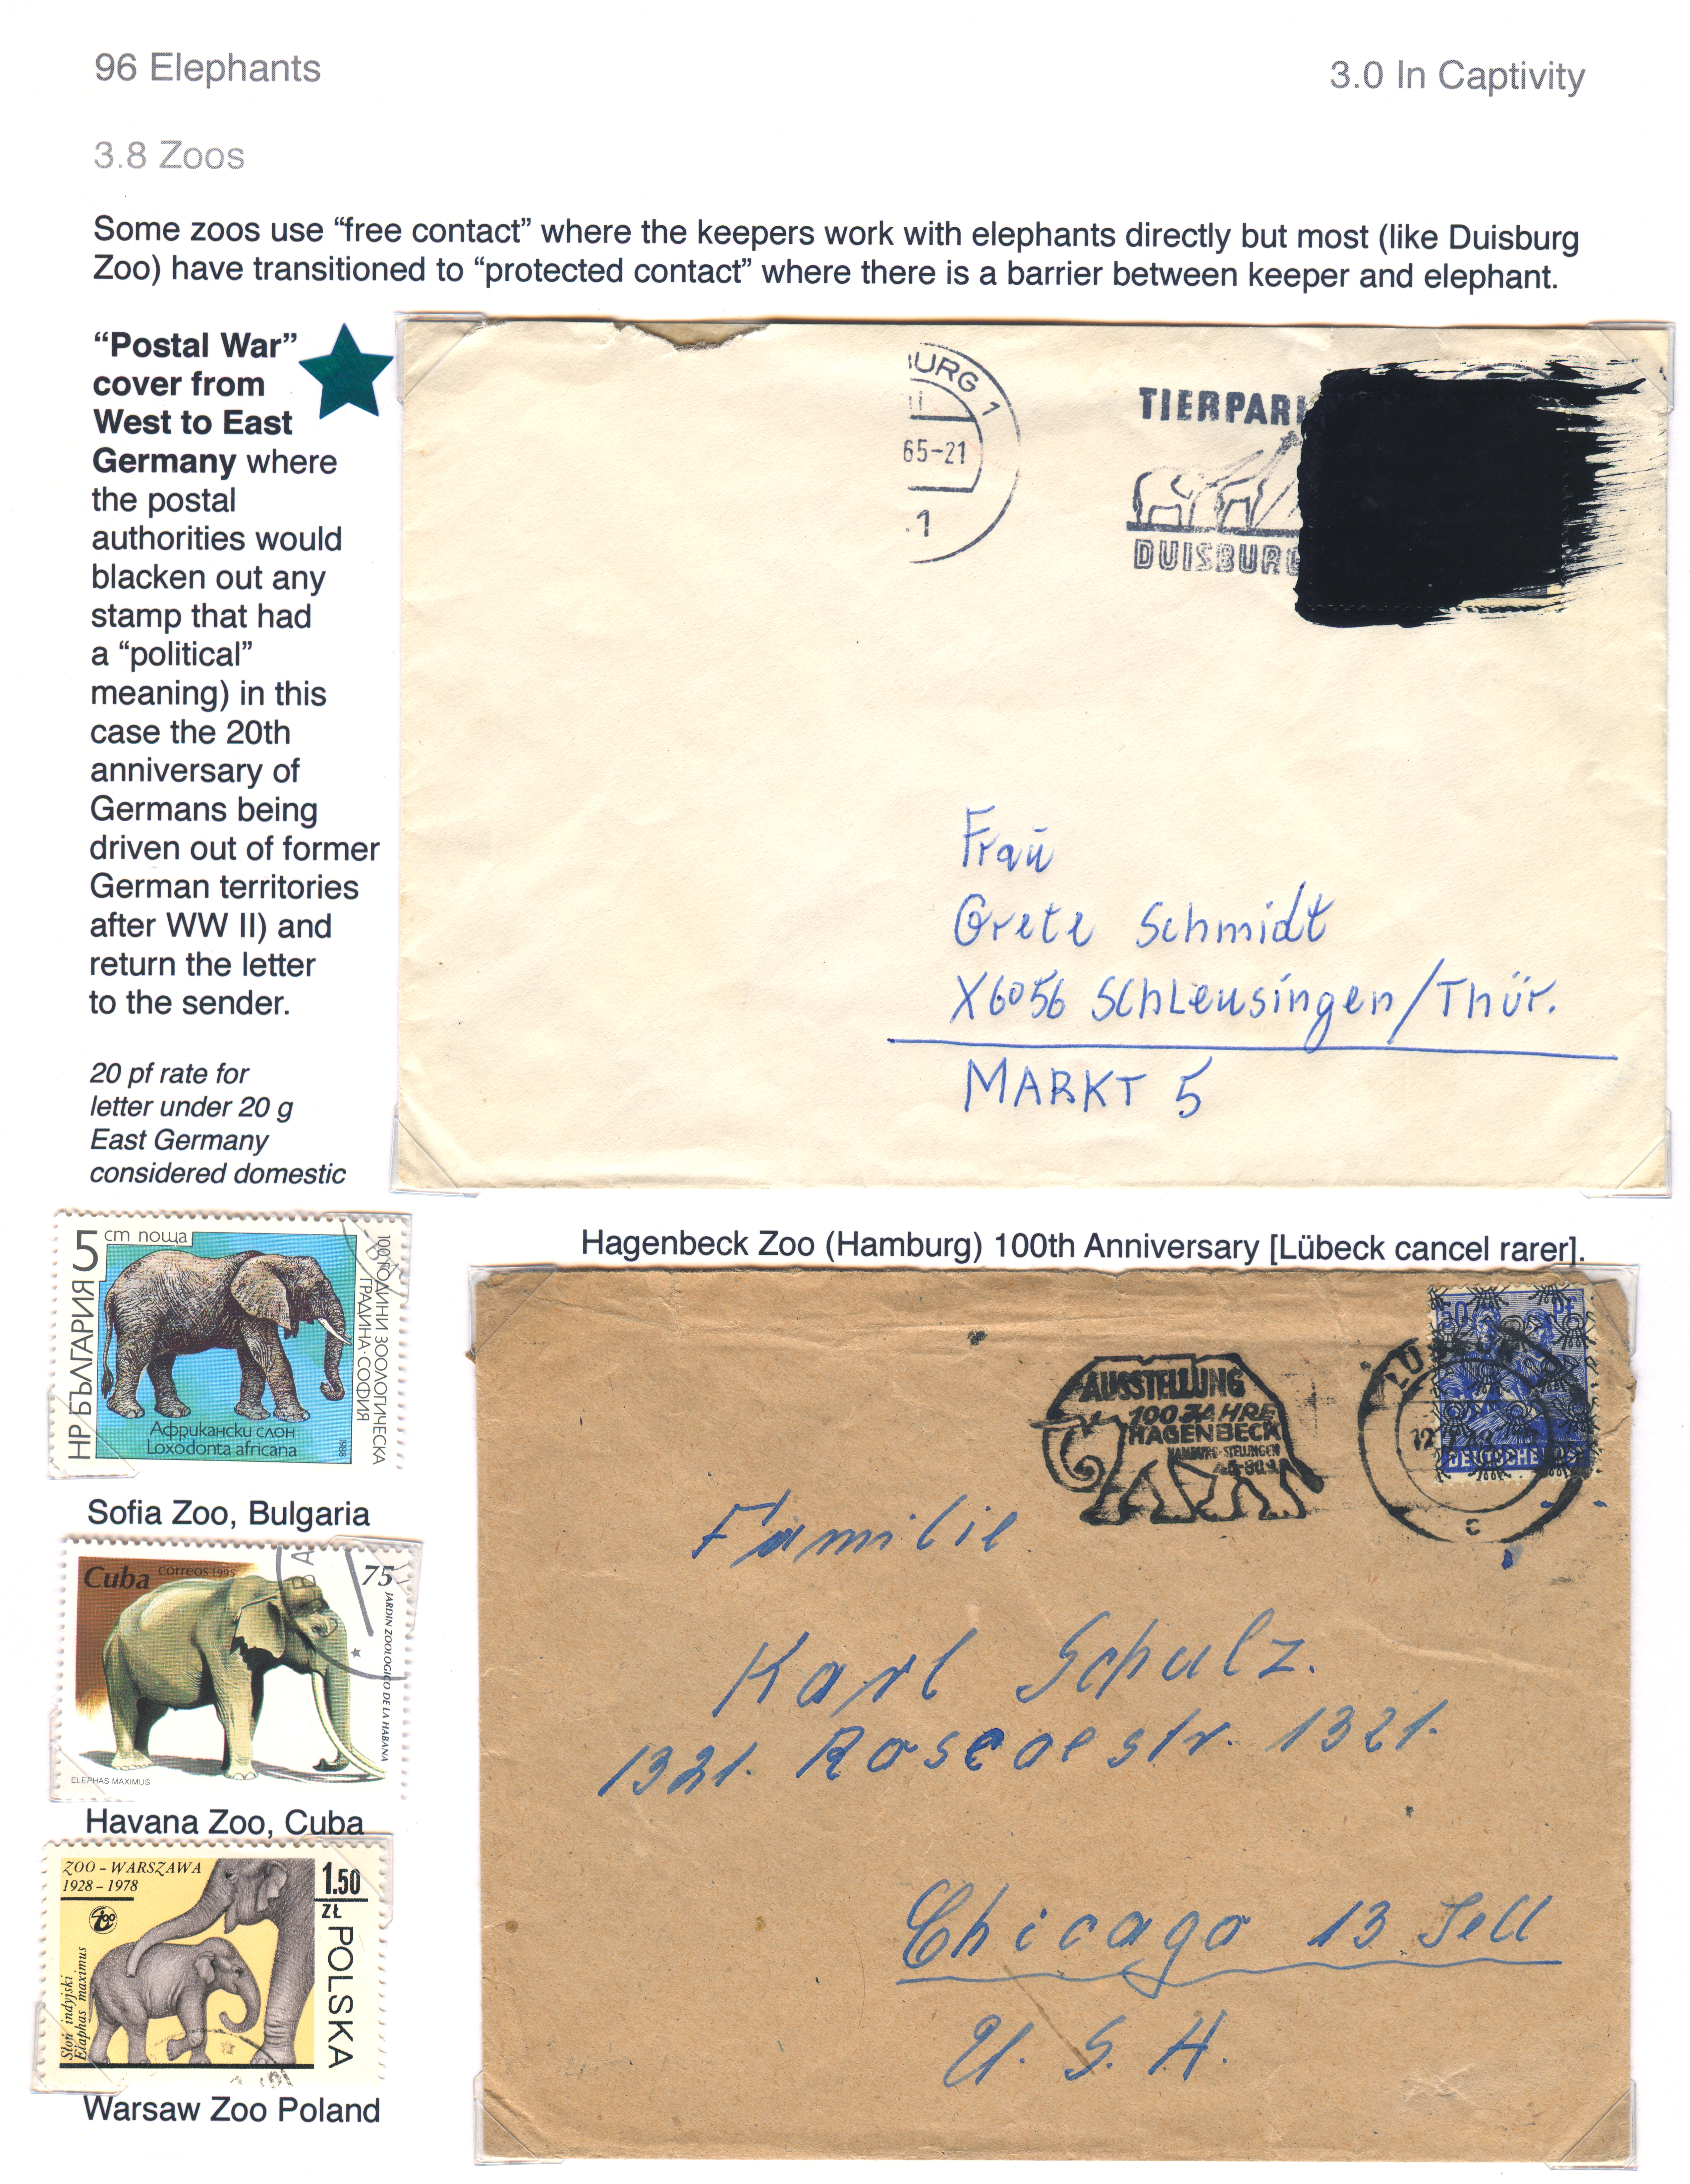 96 Elephants
3.0 In Captivity
3.8 Zoos
Some zoos use “free contact” where the keepers work with elephants directly but most (like Duisburg
Zoo) have transitioned to “protected contact” where there is a barrier between keeper and elephant.
“Postal War”
cover from
West to East
Germany where
the postal
authorities would
blacken out any
stamp that had
a “political”
meaning) in this
case the 20th
anniversary of
Germans being
driven out of former
German territories
after WW II) and
return the letter
to the sender.
20 pf rate for
letter under 20 g
East Germany
considered domestic
BURG 1
65-21
1
TIERPARK
DUISBURG
Frau
Grete Schmidt
X6056 Schleusingen/Thür.
MARKT 5
5 ст поща
НР БЪЛГАРИЯ
100 ГОДИНИ ЗООЛОГИЧЕСКА
ГРАДИНА·СОФИЯ
Африкански слон
Loxodonta africana
1988
Sofia Zoo, Bulgaria
Cuba correos 1995 75
JARDIN ZOOLOGICO DE LA HABANA
ELEPHAS MAXIMUS
Havana Zoo, Cuba
ZOO - WARSZAWA
1928 - 1978
1.50
ZŁ
POLSKA
Słoń indyjski
Elaphas maximus
Warsaw Zoo Poland
Hagenbeck Zoo (Hamburg) 100th Anniversary [Lübeck cancel rarer].
AUSSTELLUNG
100 JAHRE
HAGENBECK
HAMBURG-STELLINGEN
50 PF
DEUTSCHE POST
c
Familie
Karl Schulz.
1321. Roscoestr. 1321.
Chicago 13 Jell
U. S. A.